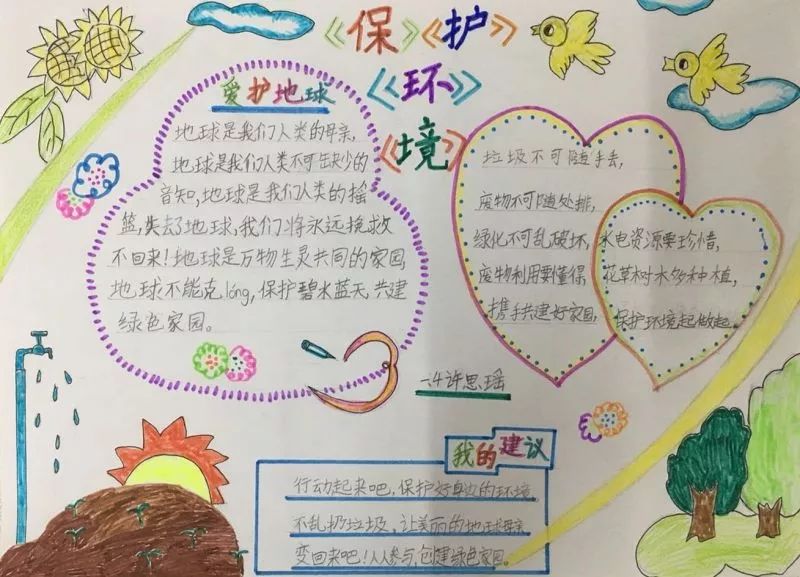 《保》《护》
《环》
《境》
爱护地球
地球是我们人类的母亲,
地球是我们人类不可缶缺少的
音知,地球是我们人类的摇
篮,失去了地球,我们将永远挽救
不回来!地球是万物生灵共同的家园,
地球不能克lóng,保护碧水蓝天,共建
绿色家园。
垃圾不可随手丢,
废物不可随处排,
绿化不可乱破坏,
废物利用要懂得,
携手共建好家园,
水电资源要珍惜,
花草树木多种植,
保护环境起做起。
一4许思瑶
我的建议
行动起来吧,保护好身边的环境
不乱扔垃圾,让美丽的地球母亲
变回来吧!人人参与,创建绿色家园。